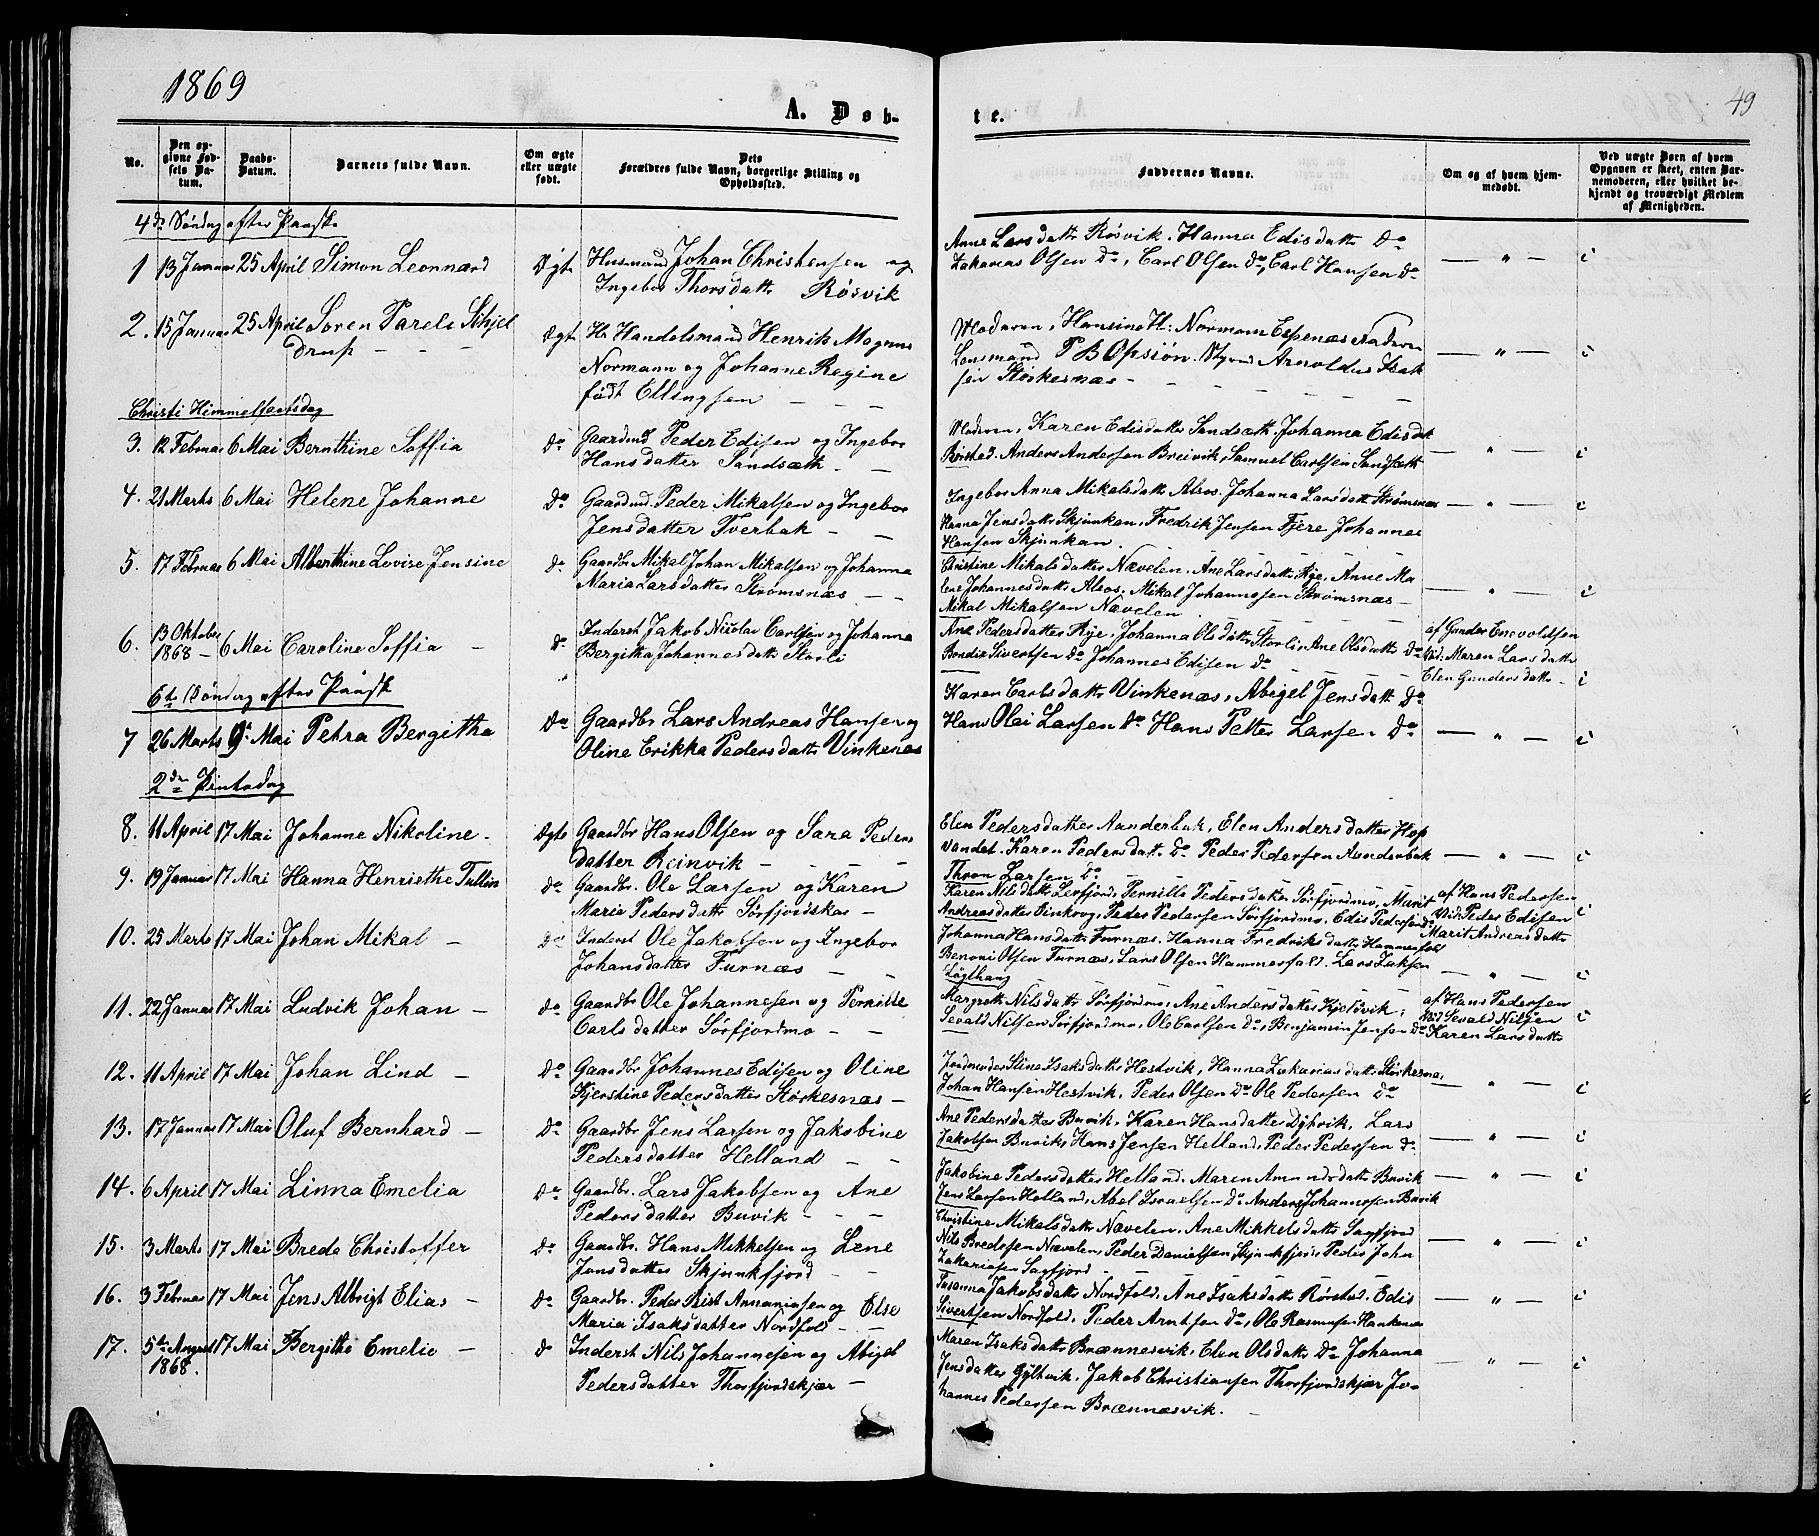 1869
49
A. Døb-
te.
No.
Den opgivne Fødselsdatum.
Daabs-Datum.
Barnets fulde Navn.
Om ægte eller uægte født.
Dets Forældres fulde Navn, borgerlige Stilling og Opholdssted.
Faddernes Navne.
Om og af hvem hjemmedøbt.
Ved uægte Børn af hvem Opgaven er skeet, enten Barnemoderen, eller hvilket bekjendt og troværdigt Medlem af Menigheden.
4de Søndag efter Paaske
1 13 Januar 25 April Simon Leonnard Ægte Husmand Johan Christensen og
Ingebor Thorsdatter Røsvik
Anne Larsdatter Røsvik. Hanna Edisdatter Do
Zakarias Olsen Do, Carl Olsen Do, Carl Hansen Do — " —
2. 15 Januar 25 April Søren Pareli Schjel
drup — — —
Ægte Hr Handelsmand Henrik Mogens
Normann og Johanne Regine
født Ellingsen — —
Moderen, Hansine H: Normann Espenæs Faderen
Lensmand P B Opsiøn. Styrmd Arnoldus Isak
sen Størkesnæs — — " —
Christi Himmelfartsdag
3. 12 Februar 6 Mai Bernthine Soffia Do Gaardmd Peder Edisen og Ingebor
Hansdatter Sandsæth. —
Moderen, Karen Edisdatter Sandsæth, Johanna Edisdt
Rørstad. Anders Andersen Breivik, Samuel Carlsen Sandsæth — " —
4. 21 Marts 6 Mai Helene Johanne Do Gaardmd Peder Mikalsen og Ingebor
Jensdatter Tverbak — —
Ingebor Anna Mikalsdatter Alsos. Johanna Larsdatter Strømsnæs
Hanna Jensdatter Skjunkan, Fredrik Jensen Fjere Johannes
Hansen Skjunkan. — " —
5. 17 Februar 6 Mai Alberthine Lovise Jensine Do Gaardbr Mikal Johan Mikalsen og Johanna
Maria Larsdatter Strømsnæs — —
Christine Mikalsdatter Nævelen. Ane Larsdatter Rye, Anne Ma
lene Johannesdatter Alsos, Mikal Johannesen Strømsnæs —
Mikal Mikalsen Nævelen — " —
6. 13 Oktober
1868 — 6 Mai Caroline Soffia — Do Inderst Jakob Nikolai Carlsen og Johanna
Bergitha Johannesdatter Storli
Ane Pedersdatter Rye, Johanna Olsdatter Storli, Ane Olsdatter Do
Bondix Sivertsen Do Johannes Edisen Do
af Gunder Enevoldsen
Vid: Maren Larsdatter
Elen Gundersdatter —
6te Søndag efter Paaske
7 26 Marts 9de Mai Petra Bergitha Do Gaardbr Lars Andreas Hansen og
Oline Erikka Pedersdatter Vinkenæs
Karen Carlsdatter Vinkenæs, Abigel Jensdatt Do
Hans Olai Larsen Do Hans Petter Larsen Do — " —
2den Pintsdag
8. 11 April 17 Mai Johanne Nikoline — Ægte Gaardbr Hans Olsen og Sara Peders
datter Reinvik — — — —
Elen Pedersdatter Aunderbak, Elen Andersdatter Hop
vandet. Karen Pedersdatt Do Peder Pedersen Aunderbak
Thron Larsen Do — " —
9. 19 Januar 17 Mai Hanna Henriethe Tullin Do Gaardbr. Ole Larsen og Karen
Maria Pedersdatter Sørfjordskar —
Karen Nilsdatt Lerfjord, Pernille Pedersdatter Sørfjordmo, Marit
Andreasdatter Vinkrog, Peder Pedersen Sørfjordmo, Edis Pedersen Do
af Hans Pedersen
Vid: Peder Edisen
Marit Andreasdatt
10. 25 Marts 17 Mai Johan Mikal — Do Inderst Ole Jakobsen og Ingebor
Johansdatter Furnæs — —
Johanna Hansdatter Furnæs. Hanna Fredriksdatter Hammerfald
Benoni Olsen Furnæs, Lars Olsen Hammerfald. Lars Isaksen
Løgthaug — — " —
11. 22 Januar 17 Mai Ludvik Johan — Do Gaardbr Ole Johannesen og Pernille
Carlsdatter Sørfjordmo — —
Margreth Nilsdatter Sørfjordmo, Ane Andersdatter Kjeldvik,
Sevald Nilsen Sørfjordmo, Ole Carlsen Do, Benjamin Jensen Do
af Hans Pedersen
Vid Sevald Nilsen
Karen Larsdatter
12. 11 April 17 Mai Johan Lind — Do Gaardbr Johannes Edisen og Oline
Kjerstine Pedersdatter Størkesnæs —
Jordmoder Stine Isaksdatter Hestvik, Hanna Zakariasdatter Størkesnæs,
Johan Hansen Hestvik, Peder Olsen Do Ole Pedersen Do — " —
13. 17 Januar 17 Mai Oluf Bernhard — Do Gaardbr Jens Larsen og Jakobine
Pedersdatter Helland — —
Ane Pedersdatter Buvik, Karen Hansdatter Dybvik, Lars
Jakobsen Buvik, Hans Jensen Helland, Peder Pedersen Do — " —
14. 6 April 17 Mai Linna Emelia Do Gaardbr. Lars Jakobsen og Ane
Pedersdatter Buvik — — —
Jakobine Pedersdatter Helland. Maren Amundsdatt Buvik
Jens Larsen Helland, Abel Israelsen Do Anders Johannesen Buvik — " —
15. 3 Marts 17 Mai Brede Christoffer Do Gaardbr. Hans Mikkelsen og Lene
Jensdatter Skjunkfjord — —
Christine Mikalsdatter Nævelen, Ane Mikkelsdatter Sagfjord
Nils Bredesen Nævelen, Peder Danielsen Skjunkfjord, Peder John
Zakariasen Sagfjord — " —
16. 3 Februar 17 Mai Jens Albrigt Elias — Do Gaardbr. Peder Prist Annaniasen og Else
Maria Isaksdatter Nordfold — —
Susanna Jakobsdatter Nordfold. Ane Isaksdatter Rørstad. Edis
Sivertsen Nordfold, Peder Arntsen Do, Ole Rasmusen Hankenæs — " —
17. 5te August
1868. 17 Mai Bergithe Emelie — Do Inderst Nils Johannesen og Abigel
Pedersdatter Thorfjordskjær —
Maren Isaksdatter Brænnesvik, Elen Olsdatter Do Johanna
Jensdatter Gyltvik, Jakob Christiansen Thorfjordskjær Jo-
hannes Pedersen Brænnesvik. — — " —